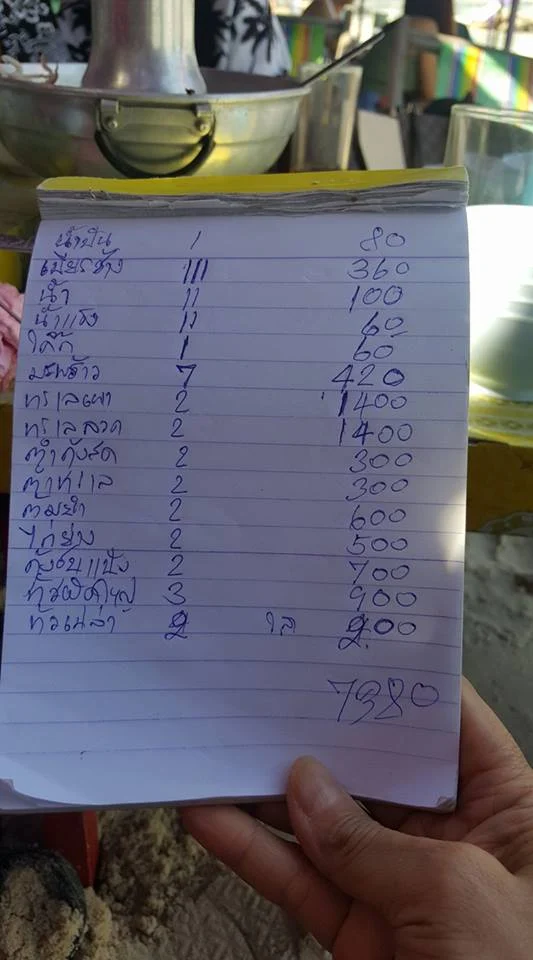 น้ำปั่น 1 80
เบียร์ช้าง 111 360
น้ำ 11 100
น้ำแข็ง 11 60
โค๊ก 1 60
มะพร้าว 7 420
ทะเลเผา 2 1400
ทะเลลวก 2 1400
ตำกุ้งสด 2 300
ตำทะเล 2 300
ต้มยำ 2 600
ไก่ย่าง 2 500
กุ้งชุบแป้ง 2 700
3 900
ข้าวเปล่า 2 โถ 200
7380